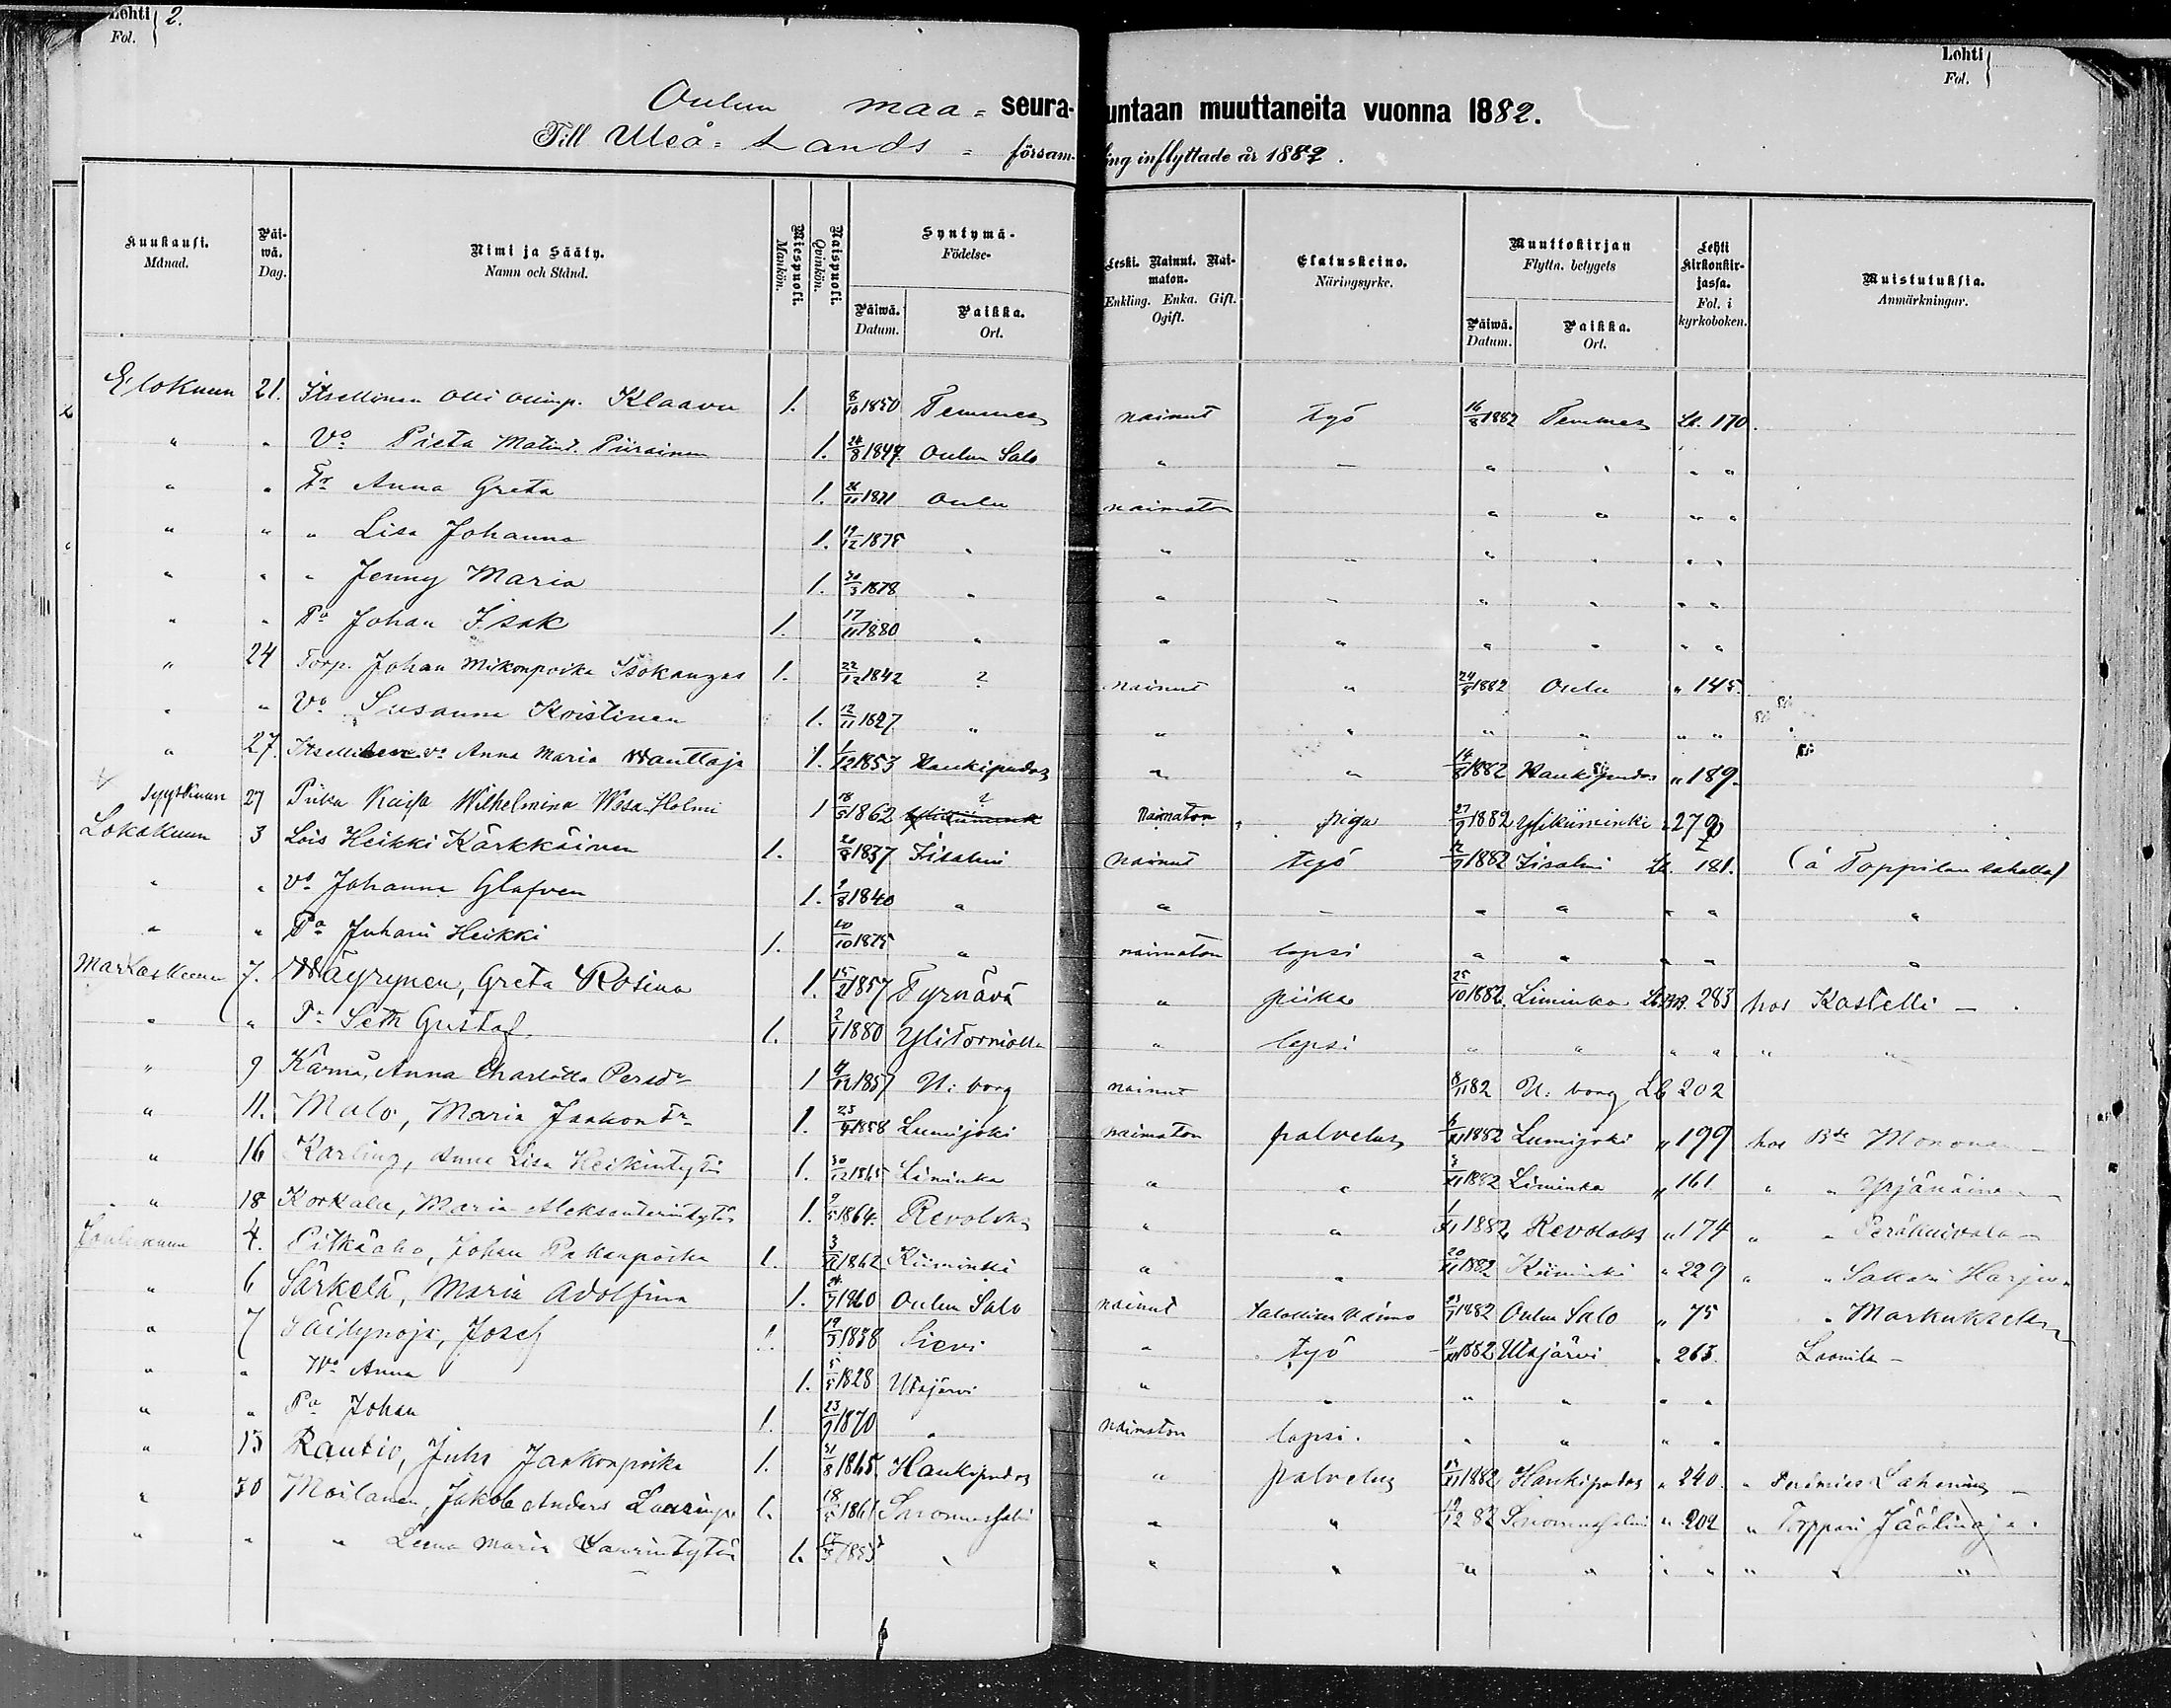 Lehti Fol. 2.
Lehti Fol.
Oulun maa- seurakuntaan muuttaneita vuonna 1882.
Till Uleå-Lands- församling inflyttade år 1882.
Kuukausi. Månad. | Päiwä. Dag. | Nimi ja Sääty. Namn och Stånd. | Miespuoli. Mankön. | Naispuoli. Qvinkön. | Syntymä- Födelse- Päiwä. Datum. | Paikka. Ort. | Leski. Nainut. Naimaton. Enkling. Enka. Gift. Ogift. | Elatuskeino. Näringsyrke. | Muuttokirjan Flyttn. betygets Päiwä. Datum. | Paikka. Ort. | Lehti kirkonkirjassa. Fol. i kyrkoboken. | Muistutuksia. Anmärkningar.
Elokuun 21. Itsellinen Olli Ollinp. Klaavu 1. 8/10 1850 Temmes nainut työ 16/8 1882 Temmes Lt. 170.
" " Vo Pieta Matint. Piirainen 1. 24/8 1847. Oulun Salo " – " " " "
" " Tr Anna Greta 1. 26/11 1871 Oulu naimaton " " " "
" " " Lisa Johanna 1. 19/12 1875 " " " " " " "
" " " Jenny Maria 1. 30/3 1878 " " " " " " "
" " Pa Johan Isak 1. 17/11 1880 " " " " " " "
" 24 Torp. Johan Mikonpoika Isokangas 1. 22/12 1842 ? nainut " 24/8 1882 Oulu " 145.
" " Vo Susanna Koistinen 1. 12/11 1827 " " " " " " "
" 27. Itsellinen vo Anna Maria Wanttaja 1. 1/12 1853 Haukipudas " " 14/8 1882 Haukipudas " 189.
Syyskuun 27 Piika Kaisa Wilhelmina Holmi 1 18/5 1862 ? Naimaton piga 27/9 1882 Ylikiiminki 279
Lokakuun 3 Lois Heikki Kärkkäinen 1. 20/8 1837 Iisalmi nainut työ 12/9 1882 Iisalmi Lt. 181. (à Toppilan sahalla)
" " vo Johanna Glafven 1. 9/8 1840 " " – " " " " "
" " Pa Juhani Heikki 1. 20/10 1875 " naimaton lapsi " " " " "
Marraskuun 7. Wäyrynen, Greta Rosina 1. 15/2 1857 Tyrnävä " piika 25/10 1882. Liminka Lt. BB. 283 hos Kastelli –
" " Seth Gustaf. 1. 2/1 1880 Ylitorniolla " lapsi " " " " " "
" 9 Kärmä, Anna Charlotta Persdr 1 4/12 1857 U:borg nainut 8/11 82 U:borg Lt 202
" 11. Malo, Maria Jaakontr 1. 23/4 1858 Lumijoki naimaton palvelus 6/11 1882 Lumijoki " 199 hos Monona
" 16 Karling, Anna Lisa Heikintytär 1. 30/12 1865 Liminka " " 3/11 1882 Liminka " 161. " " Yrjänäinen
" 18 Korkala, Maria Aleksanterintytär 1. 9/5 1864. Revolaks " " 1/11 1882 Revolaks " 174 " "
Joulukuun 4. Pitkäaho, Johan 1. 3/12 1862 Kiiminki " " 20/11 1882 Kiiminki " 229 " " Sakari Harju
" 6 Särkelä, Maria Adolfina 1. 24/7 1860 Oulun Salo nainut talollisen vaimo 23/9 1882 Oulun Salo " 75 " Markuksela
" 7 Säilynoja, Josef 1. 19/3 1838 Sievi " työ 11/11 1882 Utajärvi " 263. Laanila –
" " Wo Anna 1. 5/5 1828 Utajärvi " " " " " "
" " Pa Johan 1. 23/9 1870 " naimaton lapsi. " " " "
" 13 Rautio, Juho Jaakonpoika 1. 31/8 1865. Haukipudas " palvelus 13/11 1882 Haukipudas " 240. " Lahening –
" 30 Moilanen, Jakob Anders Laurinp. 1. 18/5 1861 Suomussalmi " " 19/12 82 Suomussalmi " 202 " Torppari Jäälinoja.
" " " Leena Maria Laurintytär 1. " " " " " " " " " "